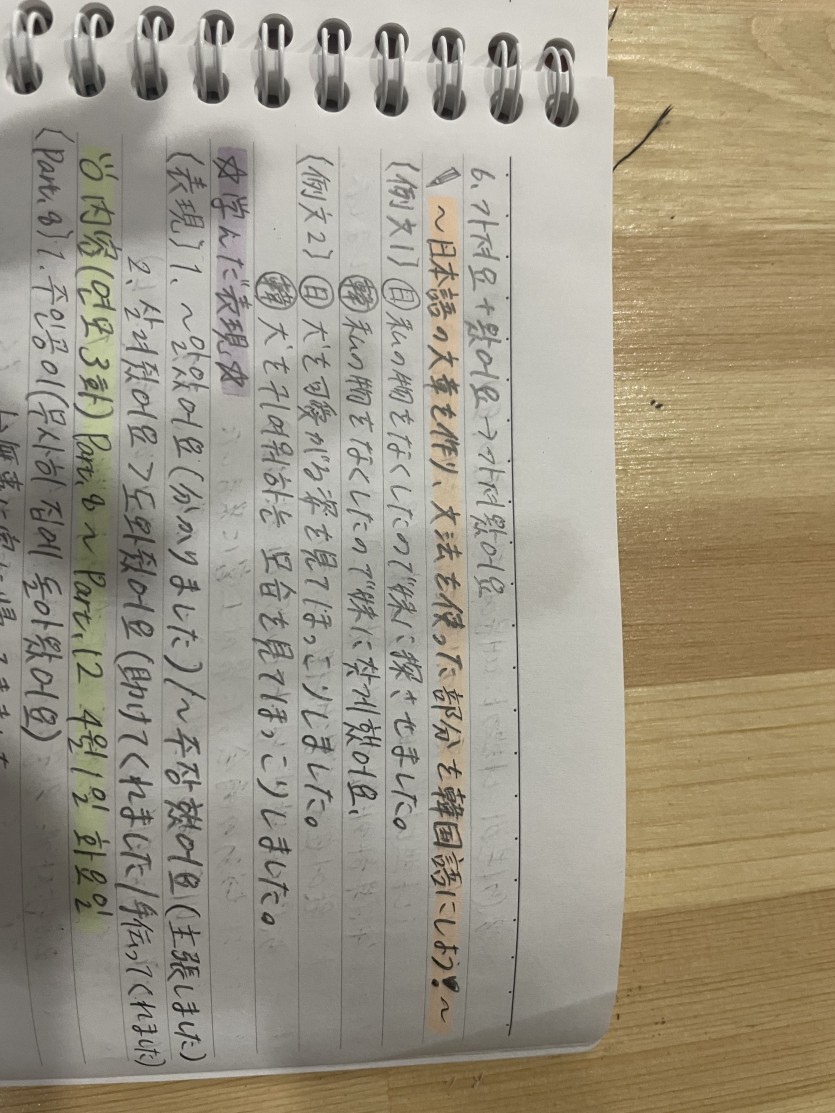 6. 가져요 + 왔어요 → 가져왔어요
~日本語の文章を作り、文法を使った部分を韓国語にしよう!~
(例文1) 日 私の物をなくしたので妹に探させました。
韓 私の物をなくしたので妹に찾게했어요.
(例文2) 日 犬を可愛がる姿を見てほっこりしました。
韓 犬を귀여워하는 모습を見てほっこりしました。
☆学んだ表現☆
(表現) 1. ~알았어요 (分かりました) / ~주장했어요 (主張しました)
2. 살려줬어요 > 도와줬어요 (助けてくれました/手伝ってくれました)
内容 (연모 3화) Part.8 ~ Part.12 4월 1일 화요일
(Part.8) 1. 주인공이 (무사히 집에 돌아왔어요)